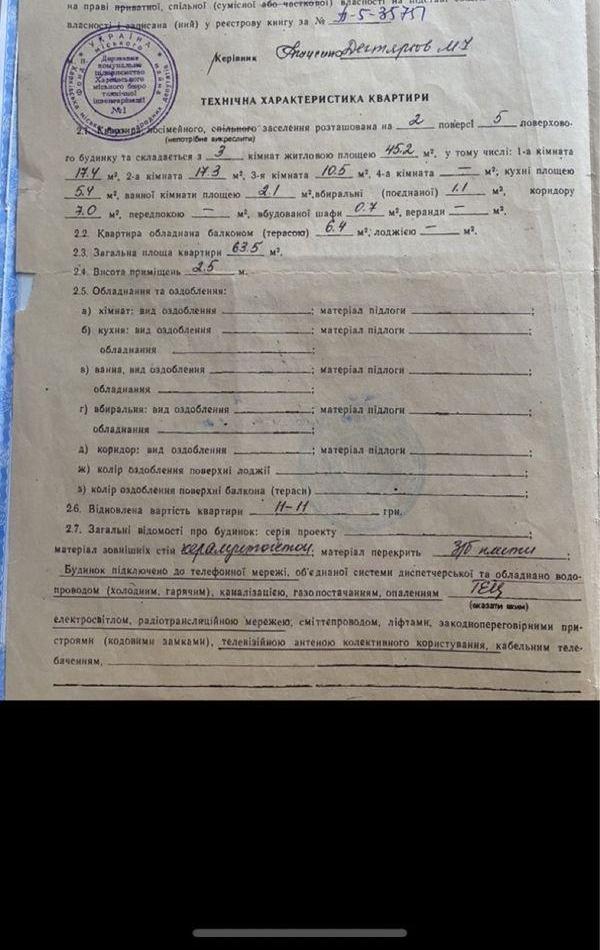 на праві приватної, спільної (сумісної або часткової) власності на підставі
власності і записана (ний) у реєстрову книгу за № п-5-35751
УКРАЇНА
Державне
комунальне
підприємство
Харківського
міського бюро
технічної
інвентаризації
№1
Керівник Дегтярьов
ТЕХНІЧНА ХАРАКТЕРИСТИКА КВАРТИРИ
2.1. Квартира, посімейного, спільного заселення розташована на 2 поверсі 5 поверхово-
(непотрібне викреслити)
го будинку та складається з 3 кімнат житловою площею 45.2 м², у тому числі: 1-а кімната
17.4 м², 2-а кімната 17.3 м², 3-я кімната 10.5 м², 4-а кімната — м²; кухні площею
5.4 м², ванної кімнати площею 2.1 м², вбиральні (поєднаної) 1.1 м², коридору
7.0 м², передпокою — м², вбудованої шафи 0.7 м², веранди — м².
2.2. Квартира обладнана балконом (терасою) 6.4 м²; лоджією — м².
2.3. Загальна площа квартири 63.5 м².
2.4. Висота приміщень 2.5 м.
2.5. Обладнання та оздоблення:
а) кімнат: вид оздоблення ; матеріал підлоги ;
б) кухня: вид оздоблення ; матеріал підлоги ;
обладнання ;
в) ванна, вид оздоблення ; матеріал підлоги ;
обладнання ;
г) вбиральня: вид оздоблення ; матеріал підлоги ;
обладнання ;
д) коридор: вид оздоблення ; матеріал підлоги ;
ж) колір оздоблення поверхні лоджії ;
з) колір оздоблення поверхні балкона (тераси) .
2.6. Відновлена вартість квартири —11—11— грн.
2.7. Загальні відомості про будинок: серія проекту ;
матеріал зовнішніх стін керамзитобетон, матеріал перекрить з/б плити ;
Будинок підключено до телефонної мережі, об'єднаної системи диспетчерської та обладнано водо-
проводом (холодним, гарячим), каналізацією, газопостачанням, опаленням ТЕЦ
(вказати яким)
електросвітлом, радіотрансляційною мережею, сміттепроводом, ліфтами, закоднопереговірними при-
строями (кодовими замками), телевізійною антеною колективного користування, кабельним теле-
баченням,